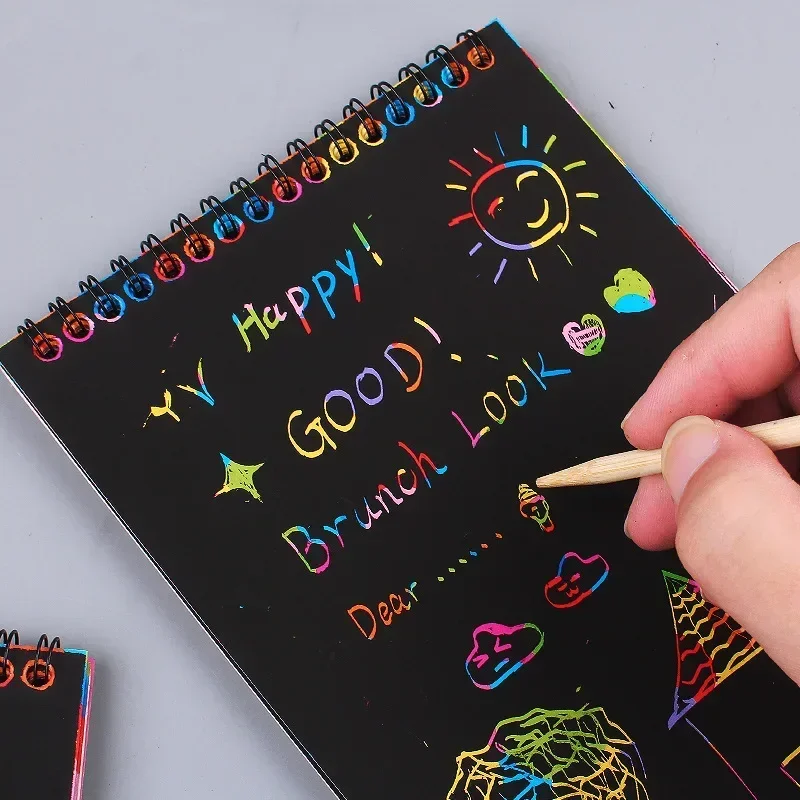 Happy!
GOOD!
Brunch LOOK
Dear ......